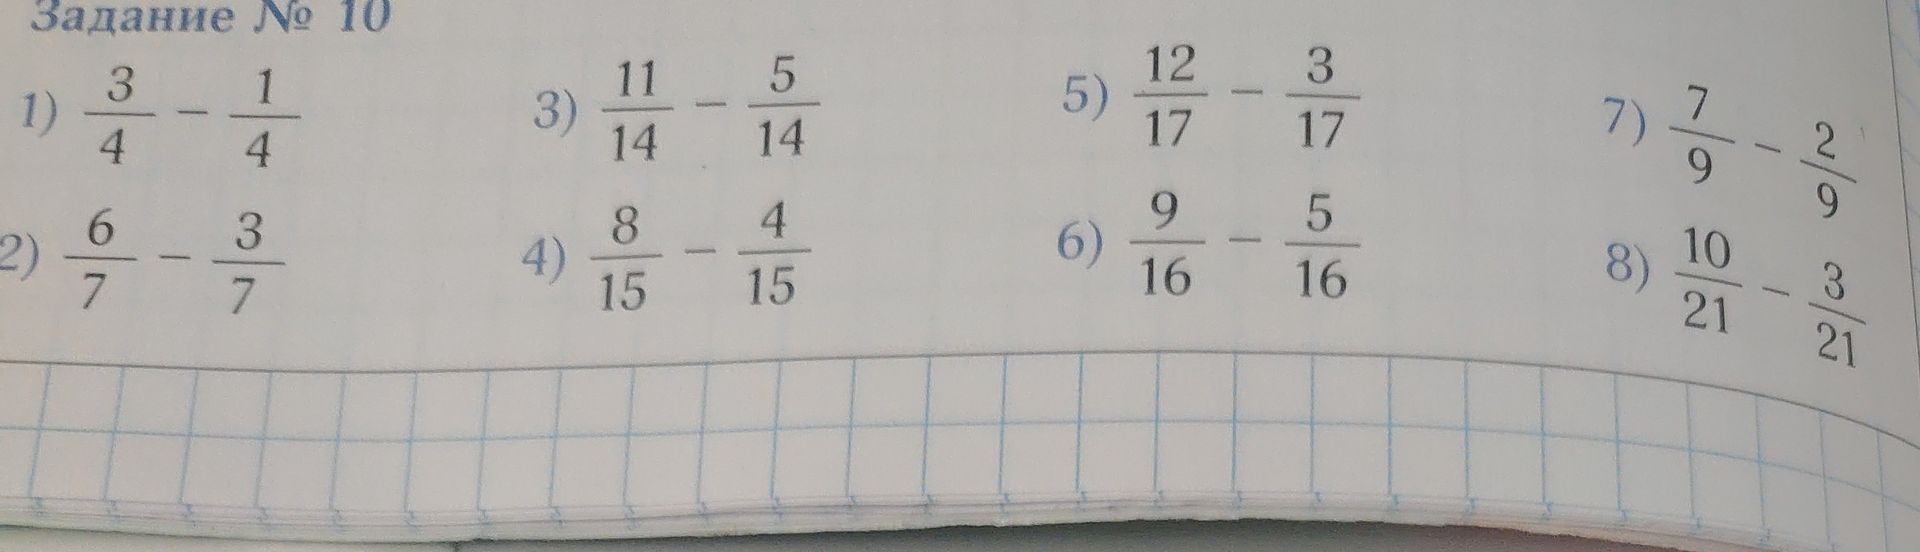 Задание № 10
1) 3/4 − 1/4
2) 6/7 − 3/7
3) 11/14 − 5/14
4) 8/15 − 4/15
5) 12/17 − 3/17
6) 9/16 − 5/16
7) 7/9 − 2/9
8) 10/21 − 3/21